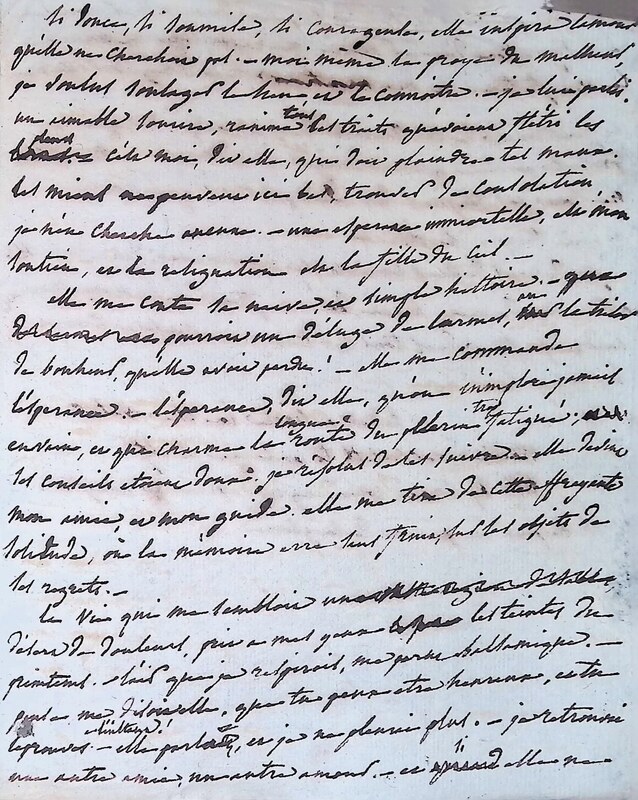 si douce, si soumise, si courageuse, elle inspira l'amour
qu'elle ne cherchoit pas. – moi même la proye du malheur,
je voulus soulager le sien et la connoitre. – je lui parlai.
un aimable sourire, ranima tout ses traits qu'avoient flétris les
pleurs cela moi, dit elle, qui dois plaindre tel maux.
les miens ne peuvent ici bas, trouver de consolation,
je n'en cherche aucune. – une esperance immortelle, est mon
soutien, et la resignation est la fille du Ciel. –
elle me conta sa naive, et simple histoire. – que
pourroit un déluge de larmes, sur le
de bonheur, qu'elle avoit perdu! – elle me commanda
l'ésperance. – l'ésperance, dit elle, qu'on n'implore jamais
envain, et qui charme la longue route du pelerin trop fatigué,
ses conseils etoient doux, je resolus de les suivre. – elle devint
mon amie, et mon guide. elle me tira de cette effrayante
solitude, où la mémoire erre sans frein, sur les objets de
ses regrets. –
la vie qui me sembloit un
désert de douleurs, prit a mes yeux les teintes du
printems. – l'air que je respirois, me parut balsamique. –
me disoit elle, que tu peux etre heureux, et tu
eprouves – elle parloit, et je ne pleurai plus. – je retrouvai
une autre amie, un autre amour. – et si elle ne